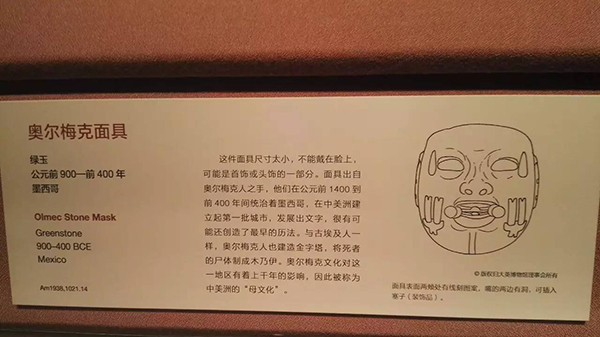 奥尔梅克面具
绿玉
公元前900—前400年
墨西哥
Olmec Stone Mask
Greenstone
900–400 BCE
Mexico
Am1938,1021.14
这件面具尺寸太小，不能戴在脸上，
可能是首饰或头饰的一部分。面具出自
奥尔梅克人之手，他们在公元前1400到
前400年间统治着墨西哥，在中美洲建
立起第一批城市，发展出文字，很有可
能还创造了最早的历法。与古埃及人一
样，奥尔梅克人也建造金字塔，将死者
的尸体制成木乃伊。奥尔梅克文化对这
一地区有着上千年的影响，因此被称为
中美洲的“母文化”。
© 版权归大英博物馆理事会所有
面具表面两颊处有线刻图案，嘴的两边有洞，可插入
塞子（装饰品）。